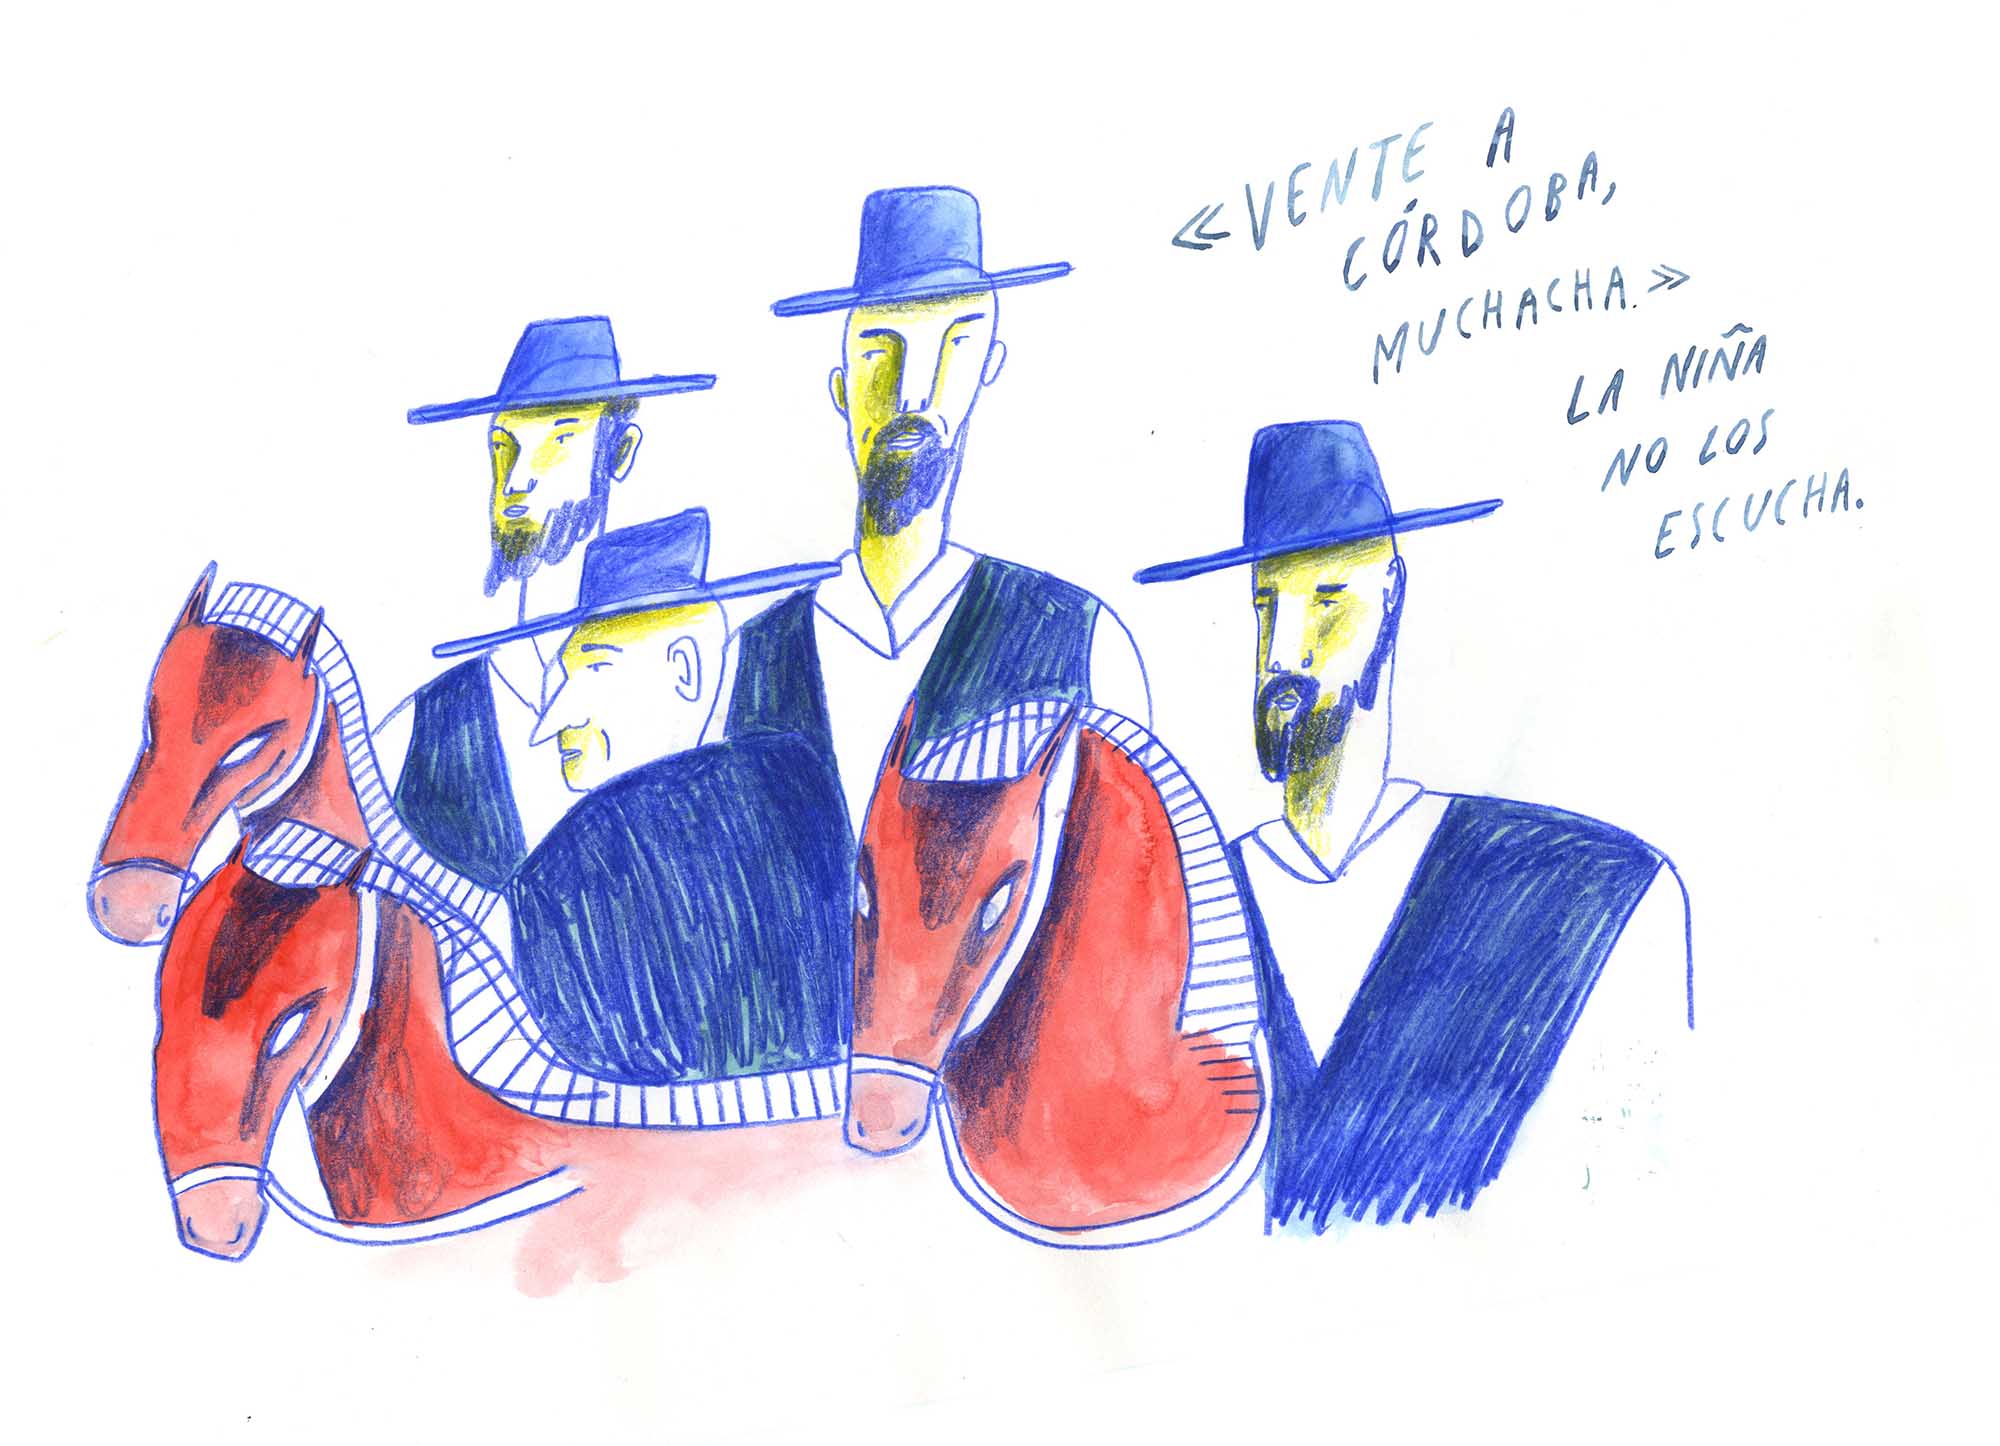 «VENTE A
CÓRDOBA,
MUCHACHA.»
LA NIÑA
NO LOS
ESCUCHA.